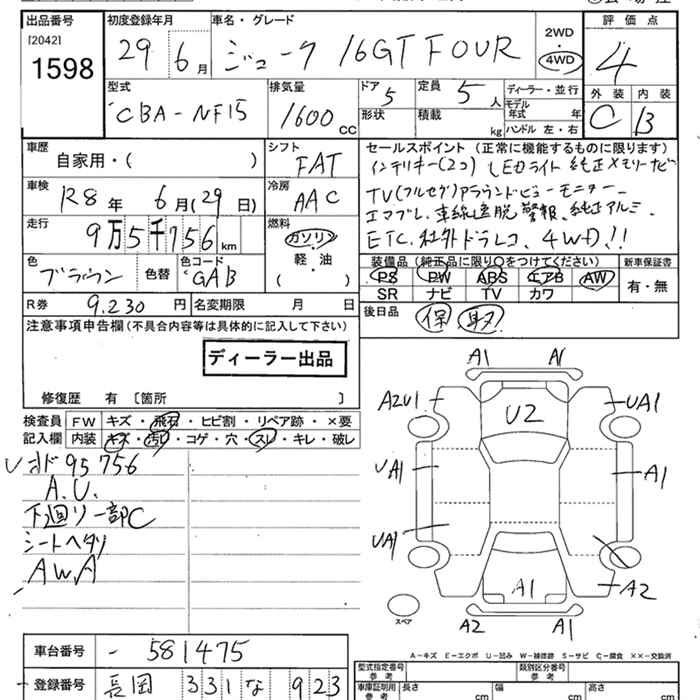 出品番号 初度登録年月 車名・グレード 評価点
[2042]
1598 29 6月 ジューク 16GT FOUR 2WD・4WD 4
型式 排気量 ドア 定員 ディーラー・並行 外装 内装
CBA-NF15 1600cc 5 5人 モデル年式 年 C B
形状 積載 kg ハンドル 左・右
車歴 シフト セールスポイント(正常に機能するものに限ります)
自家用・( ) FAT インテリキー(2コ) LEDライト 純正メモリナビ
車検 冷房 TV(フルセグ)アラウンドビューモニター
R8年 6月(29日) AAC エマブレ、車線逸脱警報、純正アルミ
走行 燃料 ETC、社外ドラレコ、4WD!!
9万5千756km ガソリン・軽・油 ( )
装備品(純正品に限り○をつけてください) 新車保証書
色 色コード PS PW ABS エアB AW 有・無
ブラウン 色替 GAB SR ナビ TV カワ
R券 9.230円 名変期限 月 日 後日品 保 取
注意事項申告欄(不具合内容等は具体的に記入して下さい)
ディーラー出品
修復歴 有〔箇所 〕
検査員 FW キズ・飛石・ヒビ割・リペア跡・×要
記入欄 内装 キズ・汚レ・コゲ・穴・スレ・キレ・破レ
95756
A.U.
下廻リ一部C
シートヘタリ
AW.A
A1 A1
A2U1 U2 UA1
UA1 A1
UA1
A1 A2
A2 A1
スペア
A-キズ E-エクボ U-凹み W-補修跡 S-サビ C-腐食 XX-交換済
車台番号 - 581475
型式指定番号 参考 類別区分番号 参考
登録番号 長岡 331 な 923
車庫証明用 参考 長さ cm 幅 cm 高さ cm